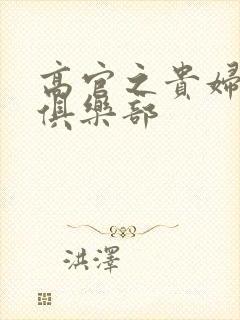 高官之貴婦
俱樂部
洪澤